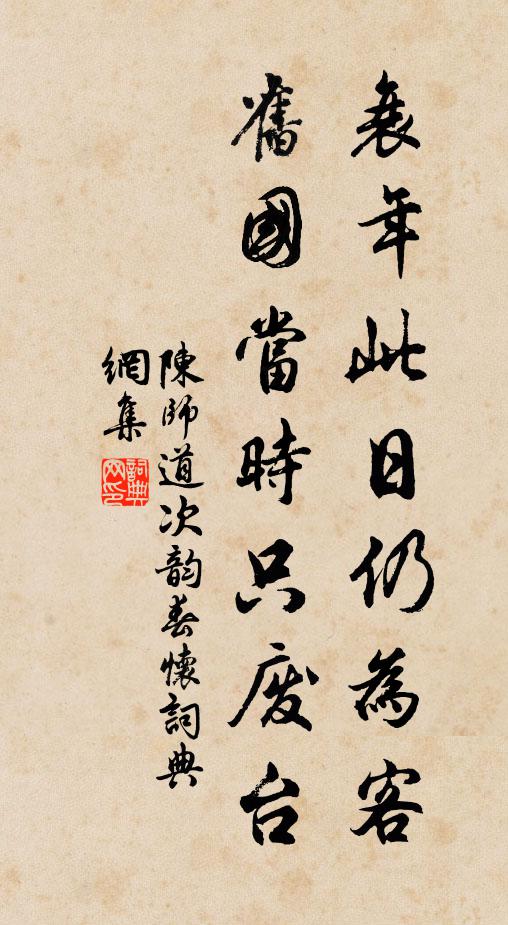 衰年此日仍為客
舊國當時只废台
陳師道次韵春懷詞典
網集
詞典
网印